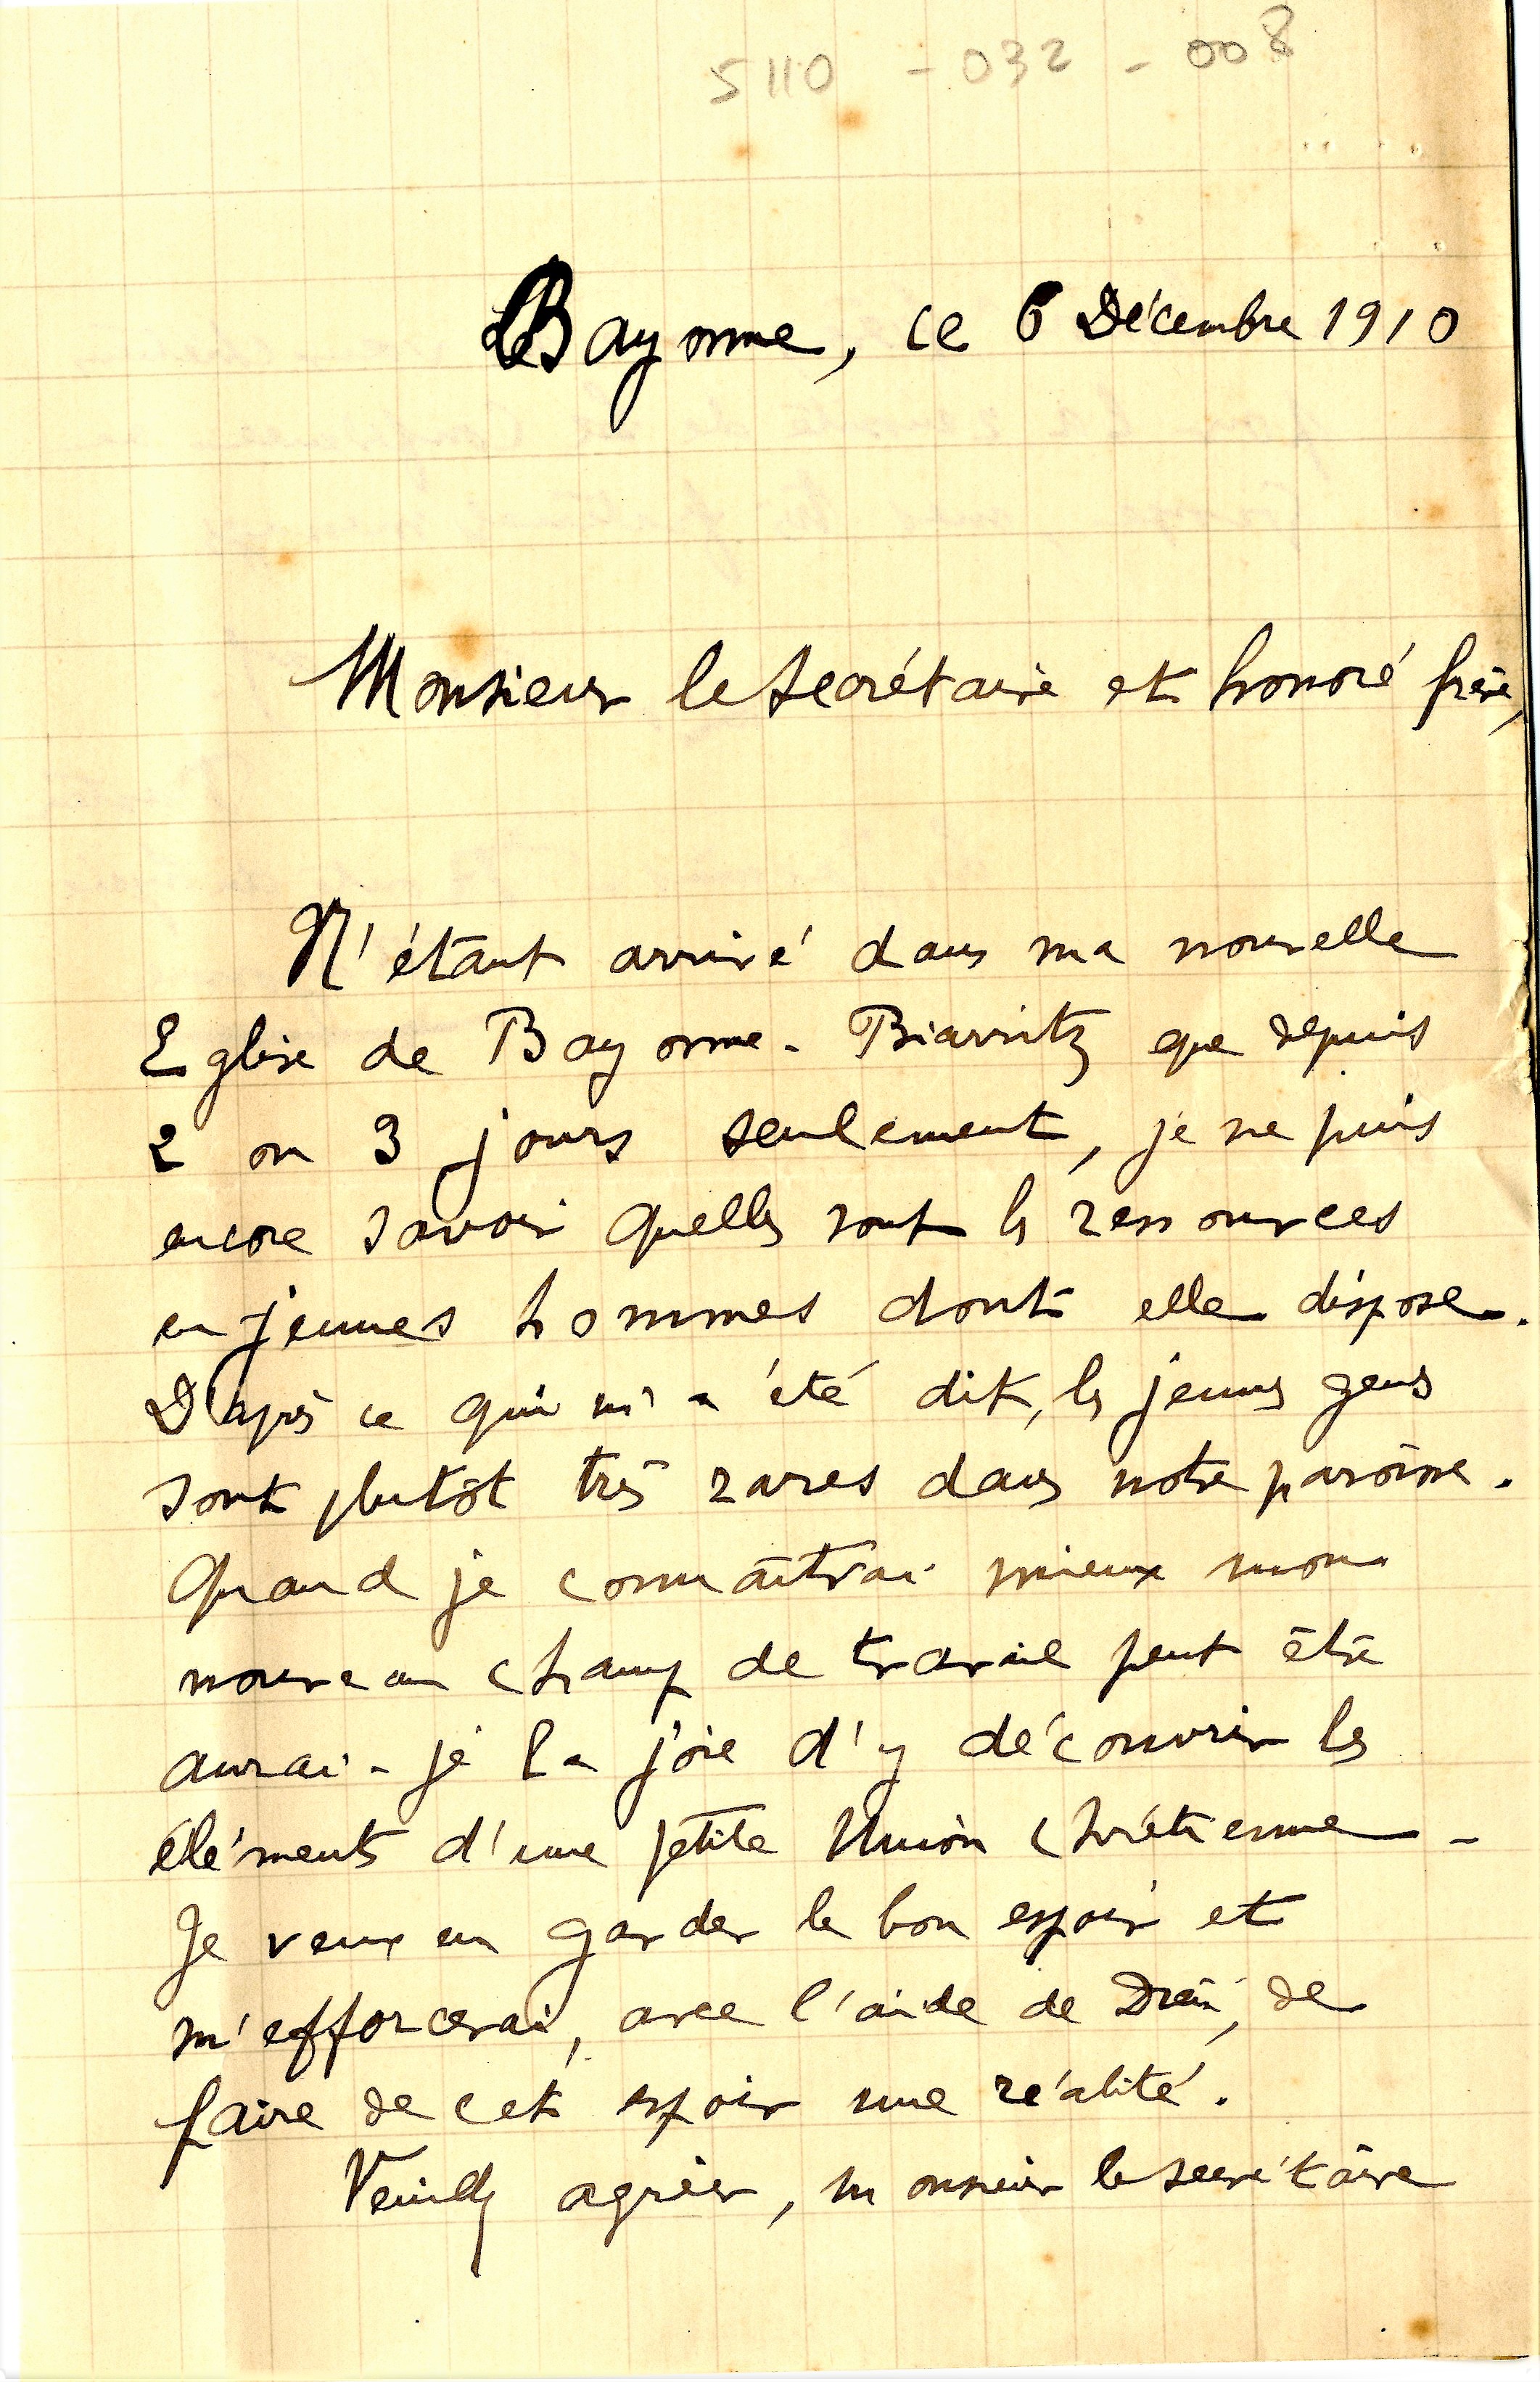 5110 - 032 - 008
Bayonne, ce 6 Décembre 1910
Monsieur le secrétaire et honoré frère,
N'étant arrivé dans ma nouvelle
Eglise de Bayonne-Biarritz que depuis
2 ou 3 jours seulement, je ne puis
encore savoir quelles sont les ressources
en jeunes hommes dont elle dispose.
D'après ce qui m'a été dit, les jeunes gens
sont plutôt très rares dans notre paroisse.
Quand je connaîtrai mieux mon
nouveau champ de travail peut être
aurai-je la joie d'y découvrir les
éléments d'une petite Union chrétienne -
Je veux en garder le bon espoir et
m'efforcerai, avec l'aide de Dieu, de
faire de cet espoir une réalité.
Veuillez agréer, monsieur le secrétaire